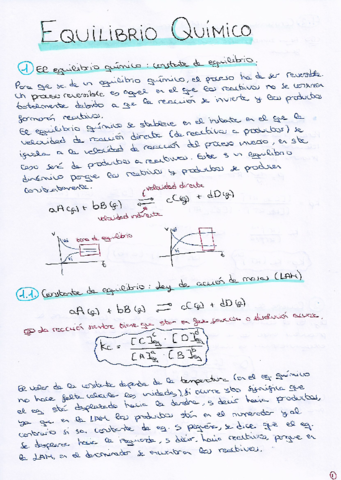 EQUILIBRIO QUÍMICO
1 El equilibrio químico: constante de equilibrio.
Para que se dé un equilibrio químico, el proceso ha de ser reversible.
Un proceso reversible es aquel en el que los reactivos no se consumen
totalmente debido a que la reacción se invierte y los productos
formarán reactivos.
El equilibrio químico se establece en el instante en el que la
velocidad de reacción directa (de reactivos a productos) se
iguala a la velocidad de reacción del proceso inverso, en este
caso será de productos a reactivos. Este es un equilibrio
dinámico porque los reactivos y productos se producen
constantemente.
velocidad directa
aA(g) + bB(g) ⇌ cC(g) + dD(g)
velocidad indirecta
v
zona de equilibrio
t
v
t
1.1. Constante de equilibrio: ley de acción de masas (LAM)
aA(g) + bB(g) ⇌ cC(g) + dD(g)
La reacción siempre tiene que estar en fase gaseosa o disolución acuosa.
Kc = [C]^c_eq · [D]^d_eq / [A]^a_eq · [B]^b_eq
El valor de la constante depende de la temperatura (en el eq. químico
no hace falta valorar las unidades) si ocurre esto significa que
el eq. está desplazado hacia la derecha, es decir hacia productos,
ya que en la LAM los productos están en el numerador y al
contrario si la constante de eq. es pequeña, se dice que el eq.
se desplaza hacia la izquierda, es decir, hacia reactivos porque en
la LAM, en el denominador se encuentran los reactivos.
1